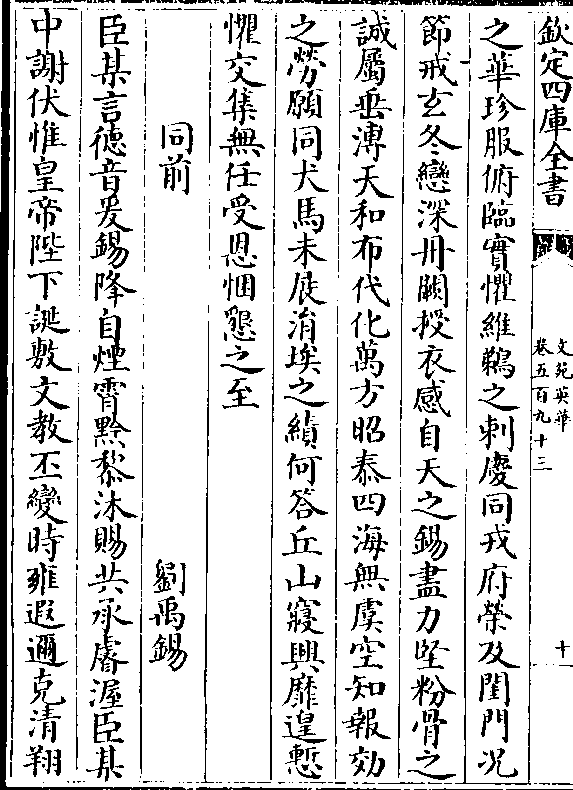 欽定四庫全書
文苑英華
卷五百九十三
十
之華珍服俯臨實懼維鵜之刺慶同戎府榮及閨門況
節戒玄冬戀深丹闕授衣感自天之錫盡力堅粉骨之
誠屬垂溥天和布代化萬方昭泰四海無虞空知報効
之勞願同犬馬未展涓埃之績何答丘山寢興靡遑慙
懼交集無任受恩悃懇之至
同前
劉禹錫
臣某言德音爰錫降自煙霄黔黎沐賜共承睿渥臣某
中謝伏惟皇帝陛下誕敷文教丕變時雍遐邇克清翔